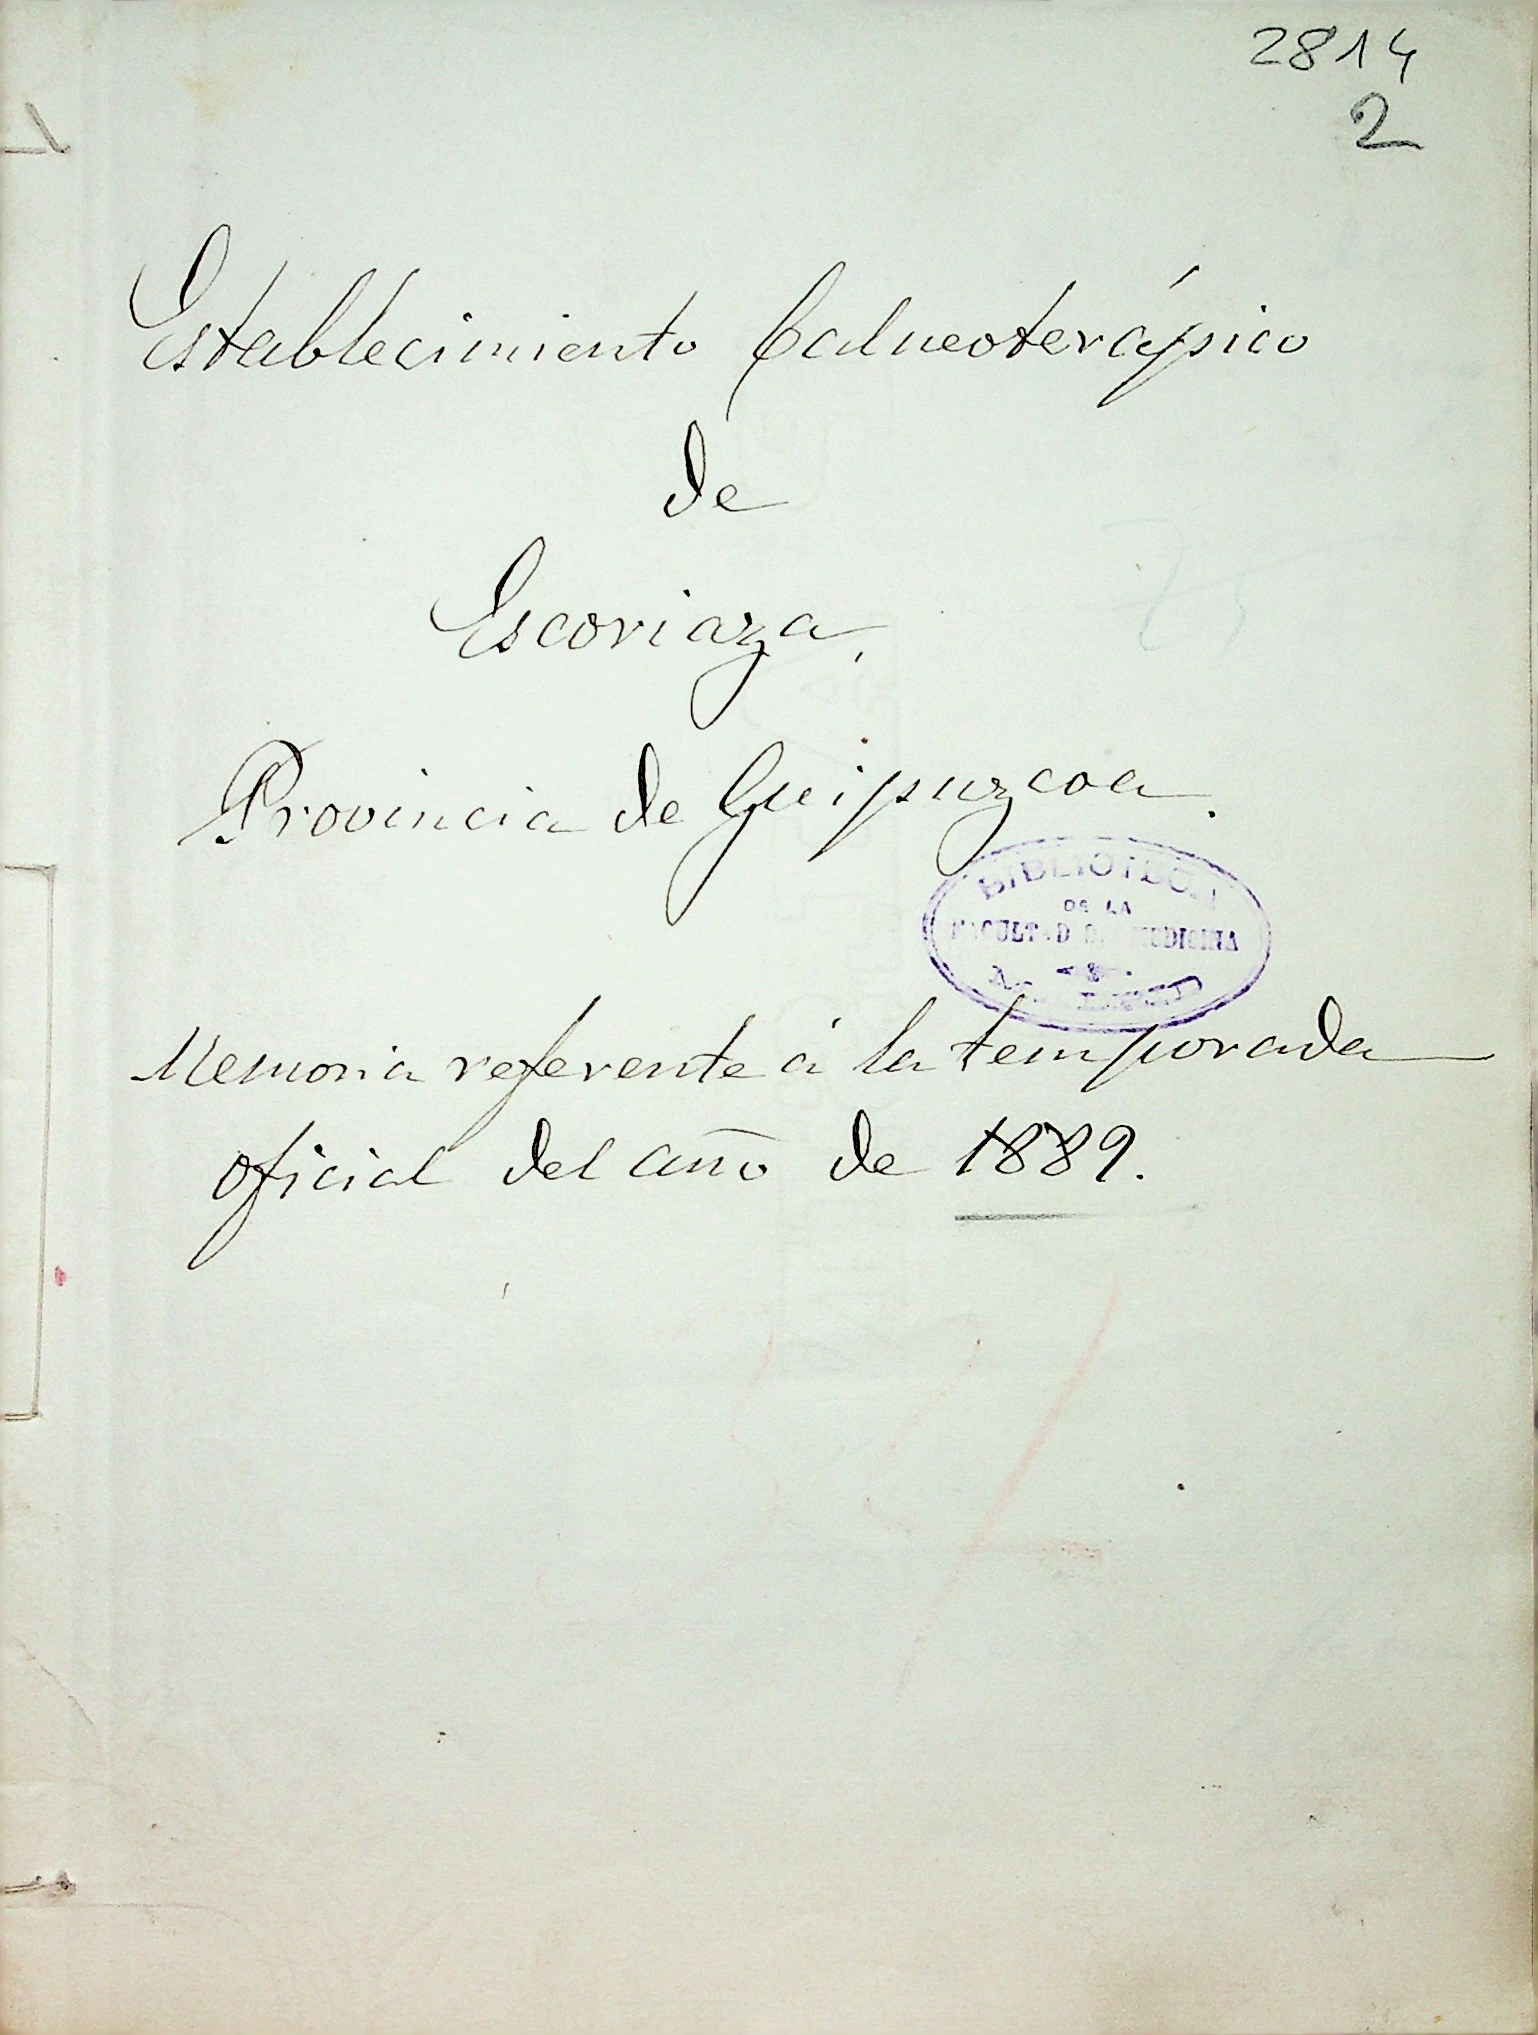 2814
2
Establecimiento balneoterápico
de
Escoriaza,
Provincia de Guipuzcoa.
BIBLIOTECA
DE LA
FACULTAD DE MEDICINA
Memoria referente á la temporada
oficial del año de 1889.